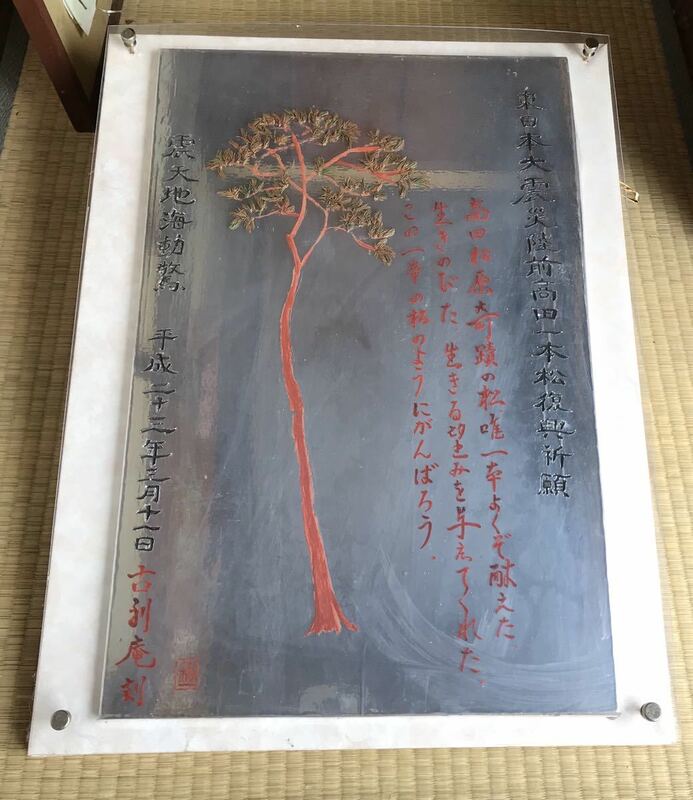 東日本大震災陸前高田一本松復興祈願
高田松原奇蹟の松唯一本よくぞ耐えた
生きのびた生きる望みを与えてくれた。
この一本の松のようにがんばろう。
震天地海動驚 平成二十三年三月十一日 古列庵刻